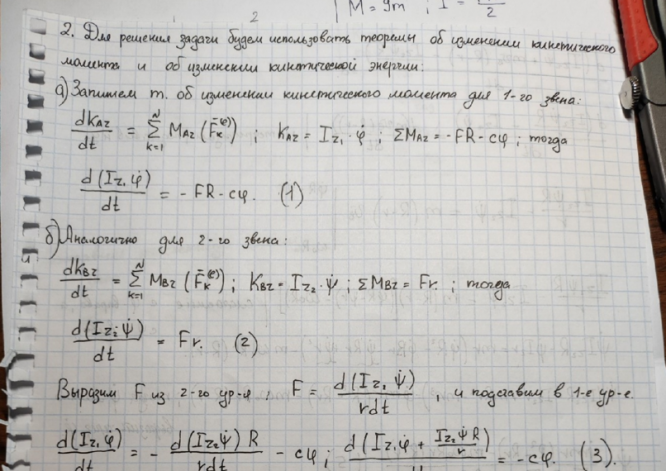 2
M = 9m ; I =
2
2. Для решения задачи будем использовать теоремы об изменении кинетического
момента и об изменении кинетической энергии.
а) Запишем т. об изменении кинетического момента для 1-го звена:
dK_Az/dt = Σ_{k=1}^{N} M_Az (F̄_k^(e)) ; K_Az = I_z₁ · φ̇ ; ΣM_Az = -FR - cφ ; тогда
d(I_z₁ φ̇)/dt = - FR - cφ. (1)
б) Аналогично для 2-го звена:
dK_Bz/dt = Σ_{k=1}^{N} M_Bz (F̄_k^(e)) ; K_Bz = I_z₂ · ψ̇ ; ΣM_Bz = Fr ; тогда
d(I_z₂ ψ̇)/dt = Fr. (2)
Выразим F из 2-го ур-я ; F = d(I_z₂ ψ̇)/rdt , и подставим в 1-е ур-е.
d(I_z₁ φ̇)/dt = - d(I_z₂ ψ̇) R/rdt - cφ ; d(I_z₁ φ̇ + I_z₂ ψ̇ R/r) = -cφ. (3).